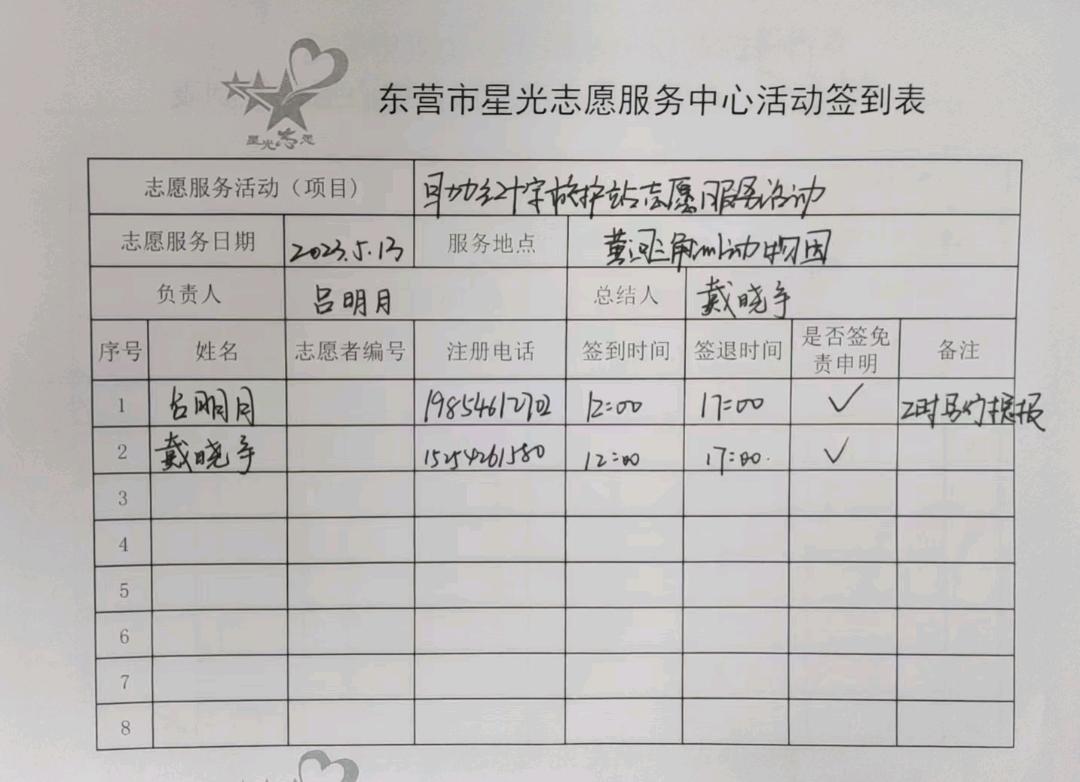 星光志愿
东营市星光志愿服务中心活动签到表
志愿服务活动（项目） 红十字救护站志愿服务活动
志愿服务日期 2023.5.13 服务地点 黄河三角洲动物园
负责人 吕明月 总结人 戴晓宇
序号 姓名 志愿者编号 注册电话 签到时间 签退时间 是否签免责申明 备注
1 吕明月 12:00 17:00 ✓
2 戴晓宇 15254261580 12:00 17:00. ✓
3
4
5
6
7
8